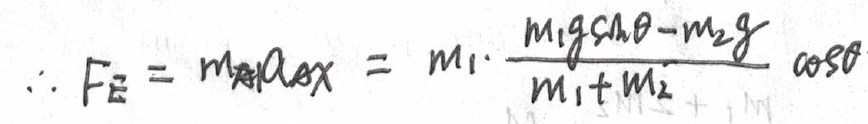 ∴ F_E = m_1 a_{Ax} = m_1 · \frac{m_1 g sinθ - m_2 g}{m_1 + m_2} cosθ